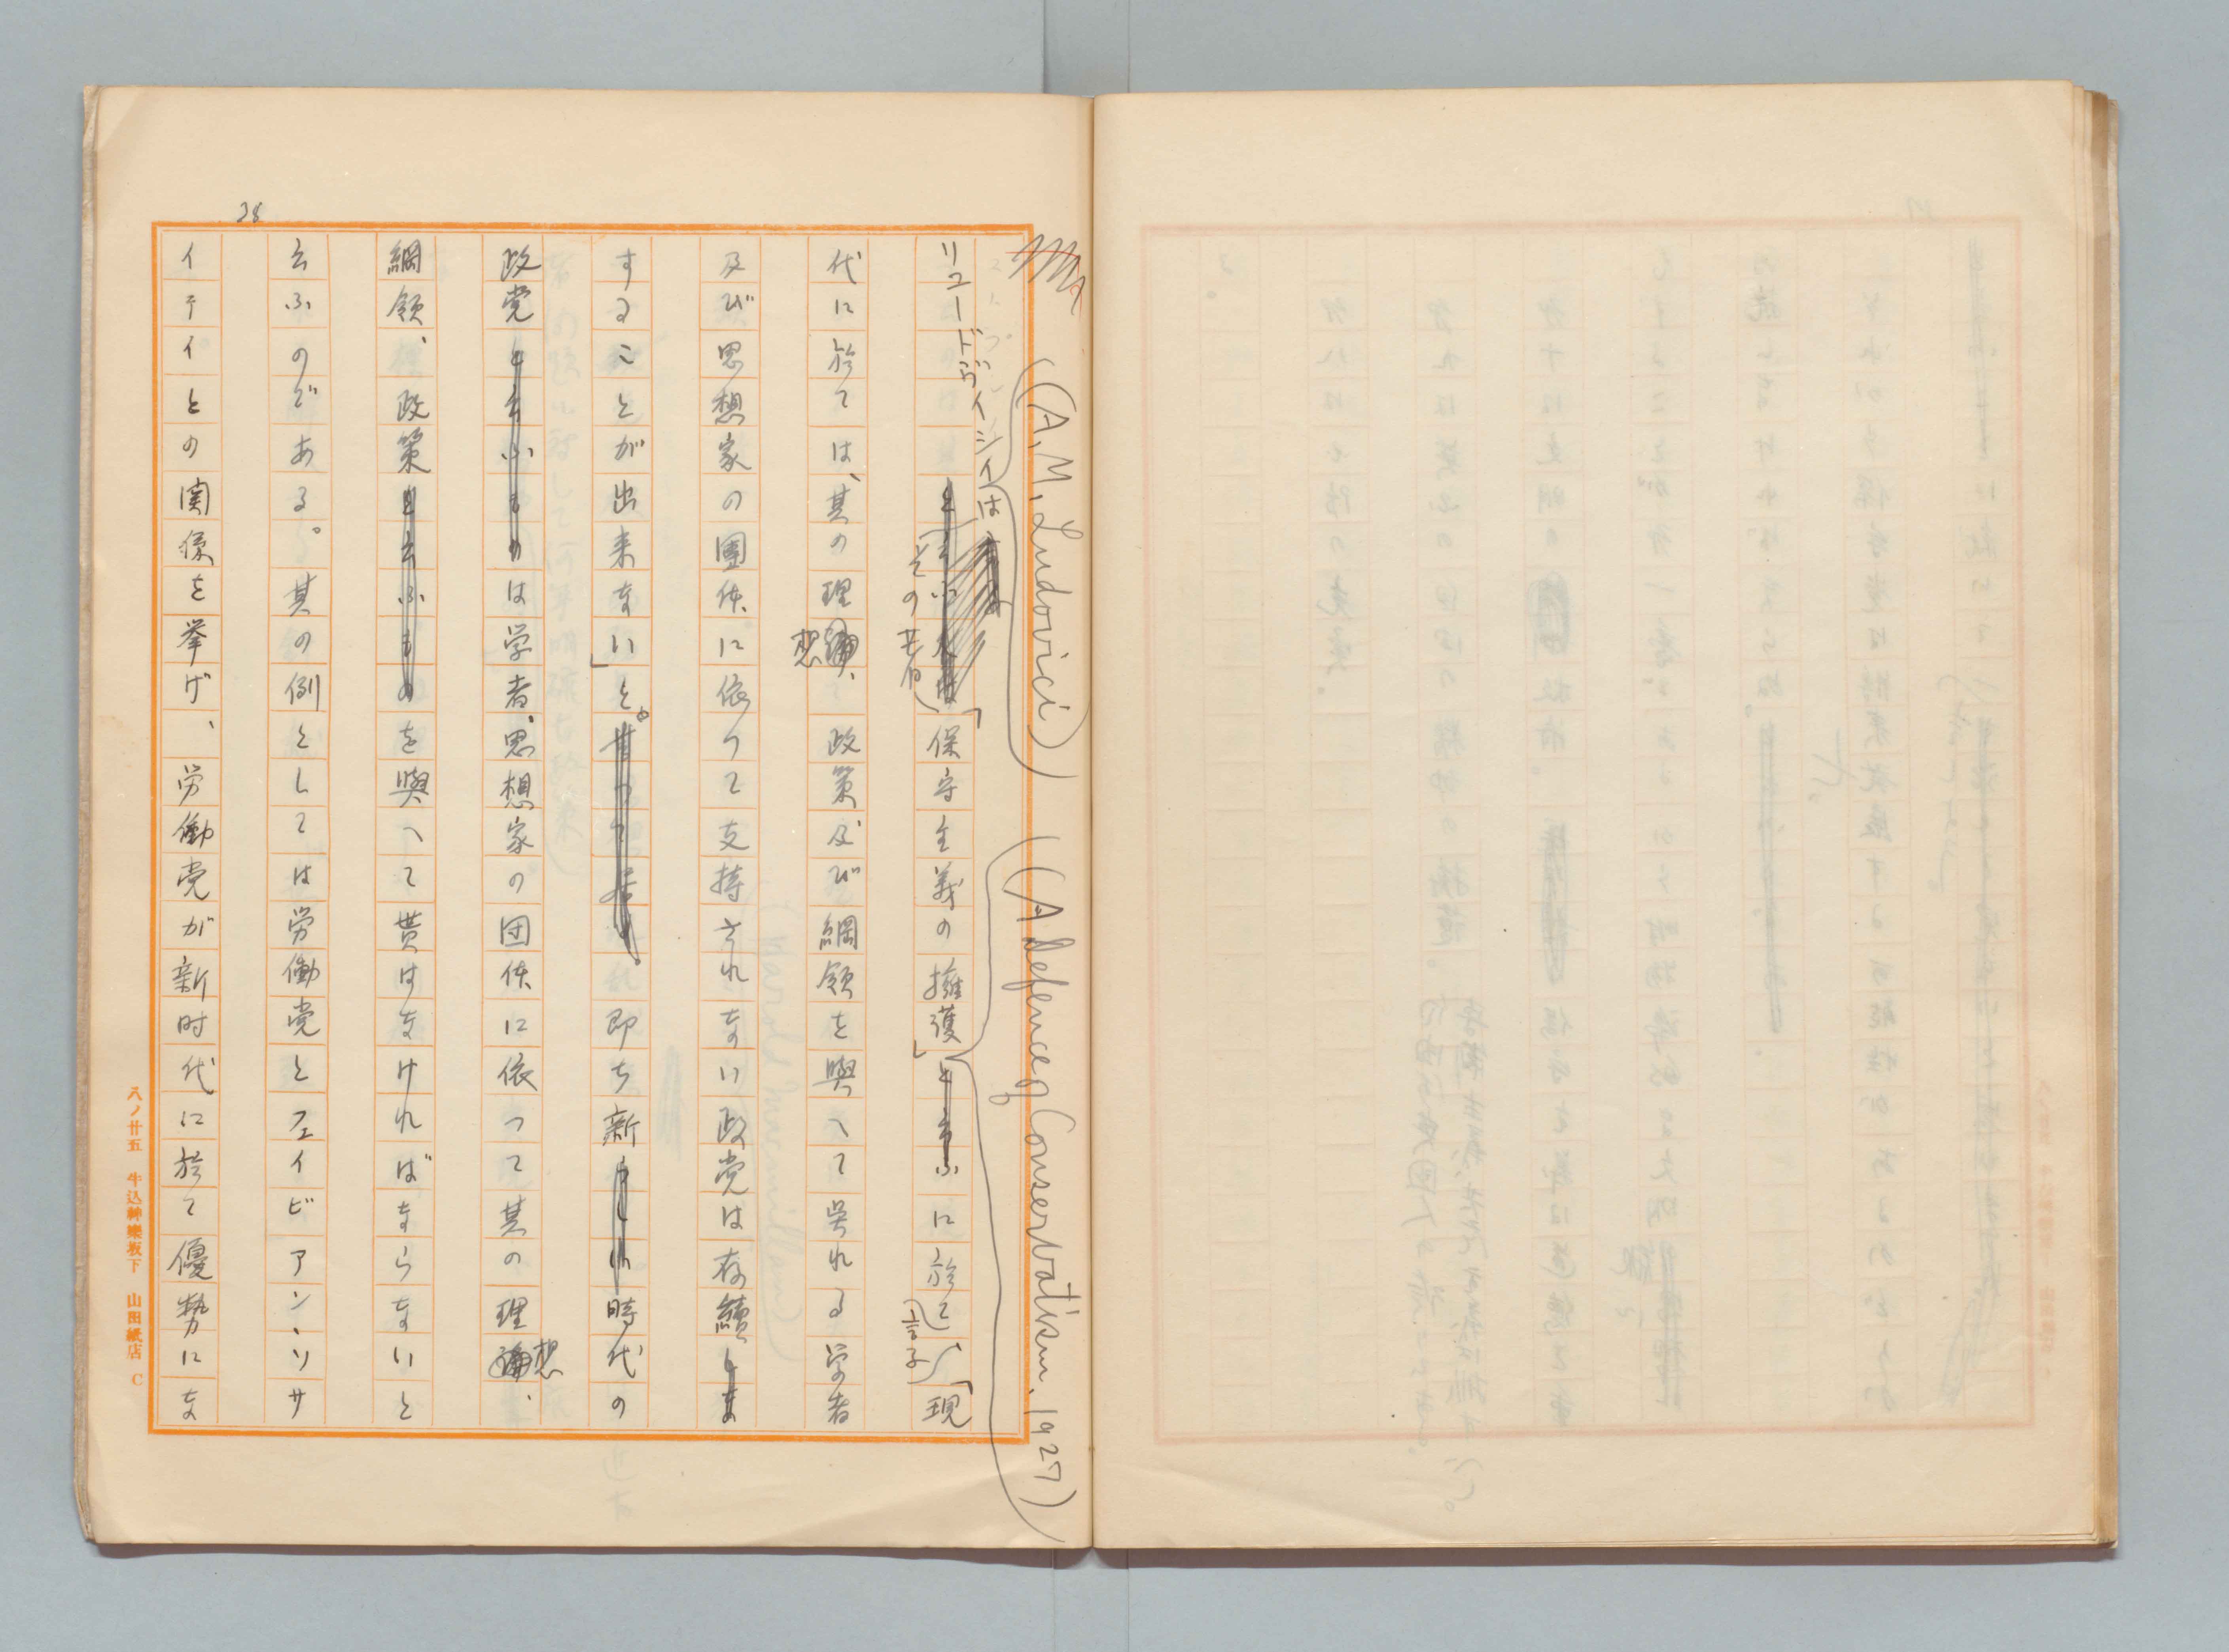 28
(A. M. Ludovici)
(A Defence of Conservatism, 1927)
リュードヴイシイは
その著「保守主義の擁護」に於て(言ふ)「現
代に於ては、其の理想、政策及び綱領を與へて呉れる学者
及び思想家の團体に依つて支持されない政党は存續
することが出来ない」と。即ち新時代の
政党は学者、思想家の団体に依つて其の理想、
綱領、政策を與へて貰はなければならないと
云ふのである。其の例としては労働党とフェイビアン、ソサ
イテイとの関係を挙げ、労働党が新时代に於て優勢にな
八ノ廿五 牛込神樂坂下 山田紙店 C